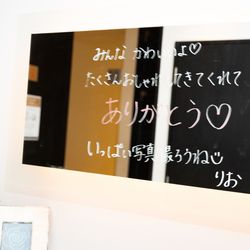 みんな かわいいよ♡
たくさんおしゃれしてきてくれて
ありがとう♡
いっぱい写真撮ろうね
りお